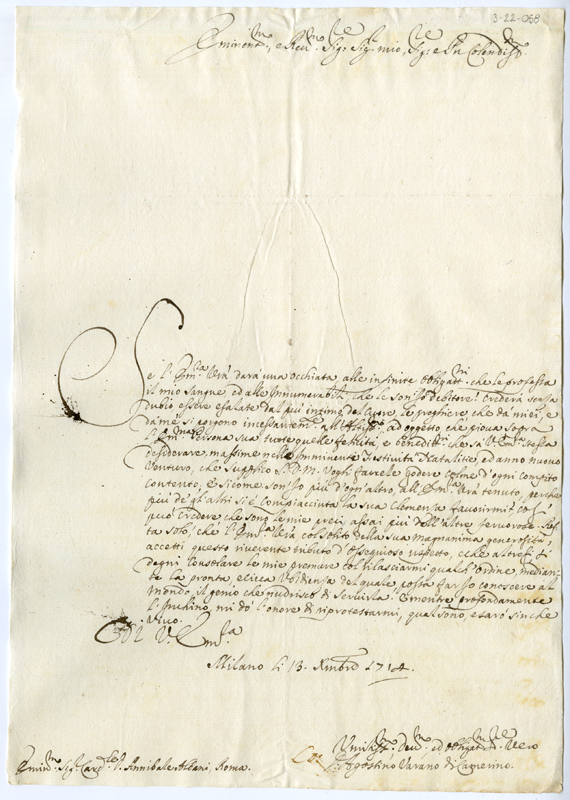 3-22-068
Eminent.mo, e Reu.mo Sig.r Sig.r mio, Sig.r e Pñ Colendis.mo
Se l'Em.za Vrã darà una occhiata alle infinite obligat.ni che le professa
il mio sangue, ed alle innumerabili, che le son' Io debitore, crederà senza
dubio essere esalate dal più intimo del cuore, le preghiere, che da' miei, e
da me si porgono incessantem.te all' Altiss.o ad oggetto che piova sopra
l'Em.ma Persona sua tutte quelle felicità, e benedit.ni che sà l'Em.za stessa
desiderare, massime nelle imminente Festività Natalitie, ed anno nuouo
Venturo, che supplico S.D.M. Vogli farcele godere colme d'ogni compito
contento, e sicome son' Io più d'ogn' altro, all' Em.za Vrã tenuto, perche
più de gl'altri si è compiacciuta la sua Clemenza fauorirmi così
può credere che sono le mie preci, assai più dell' altre feruorose. Res
ta solo, che l'Em.za Vrã col solito della sua magnanima generosità
accetti questo riuerente tributo d'ossequioso rispetto, e che altresì si
degni consolare le mie premure col rilasciarmi qualch' ordine, median-
te la pronta, e cieca ubidienza del quale possa far Io conoscere al
mondo, il genio che nudrisco di seruirla. E mentre profondamente
l'Inchino, mi dò l'onore di riprotestarmi, qual sono, e sarò sin che
viuo.
Di V. Em.za
Milano li 13. Xmbre 1714.
Vmilis.mo Deu.mo ed obligat.mo Seruo Vero
Agostino Varano di Camerino.
Emin.mo Sig.r Card.le D. Annibale Albani, Roma.